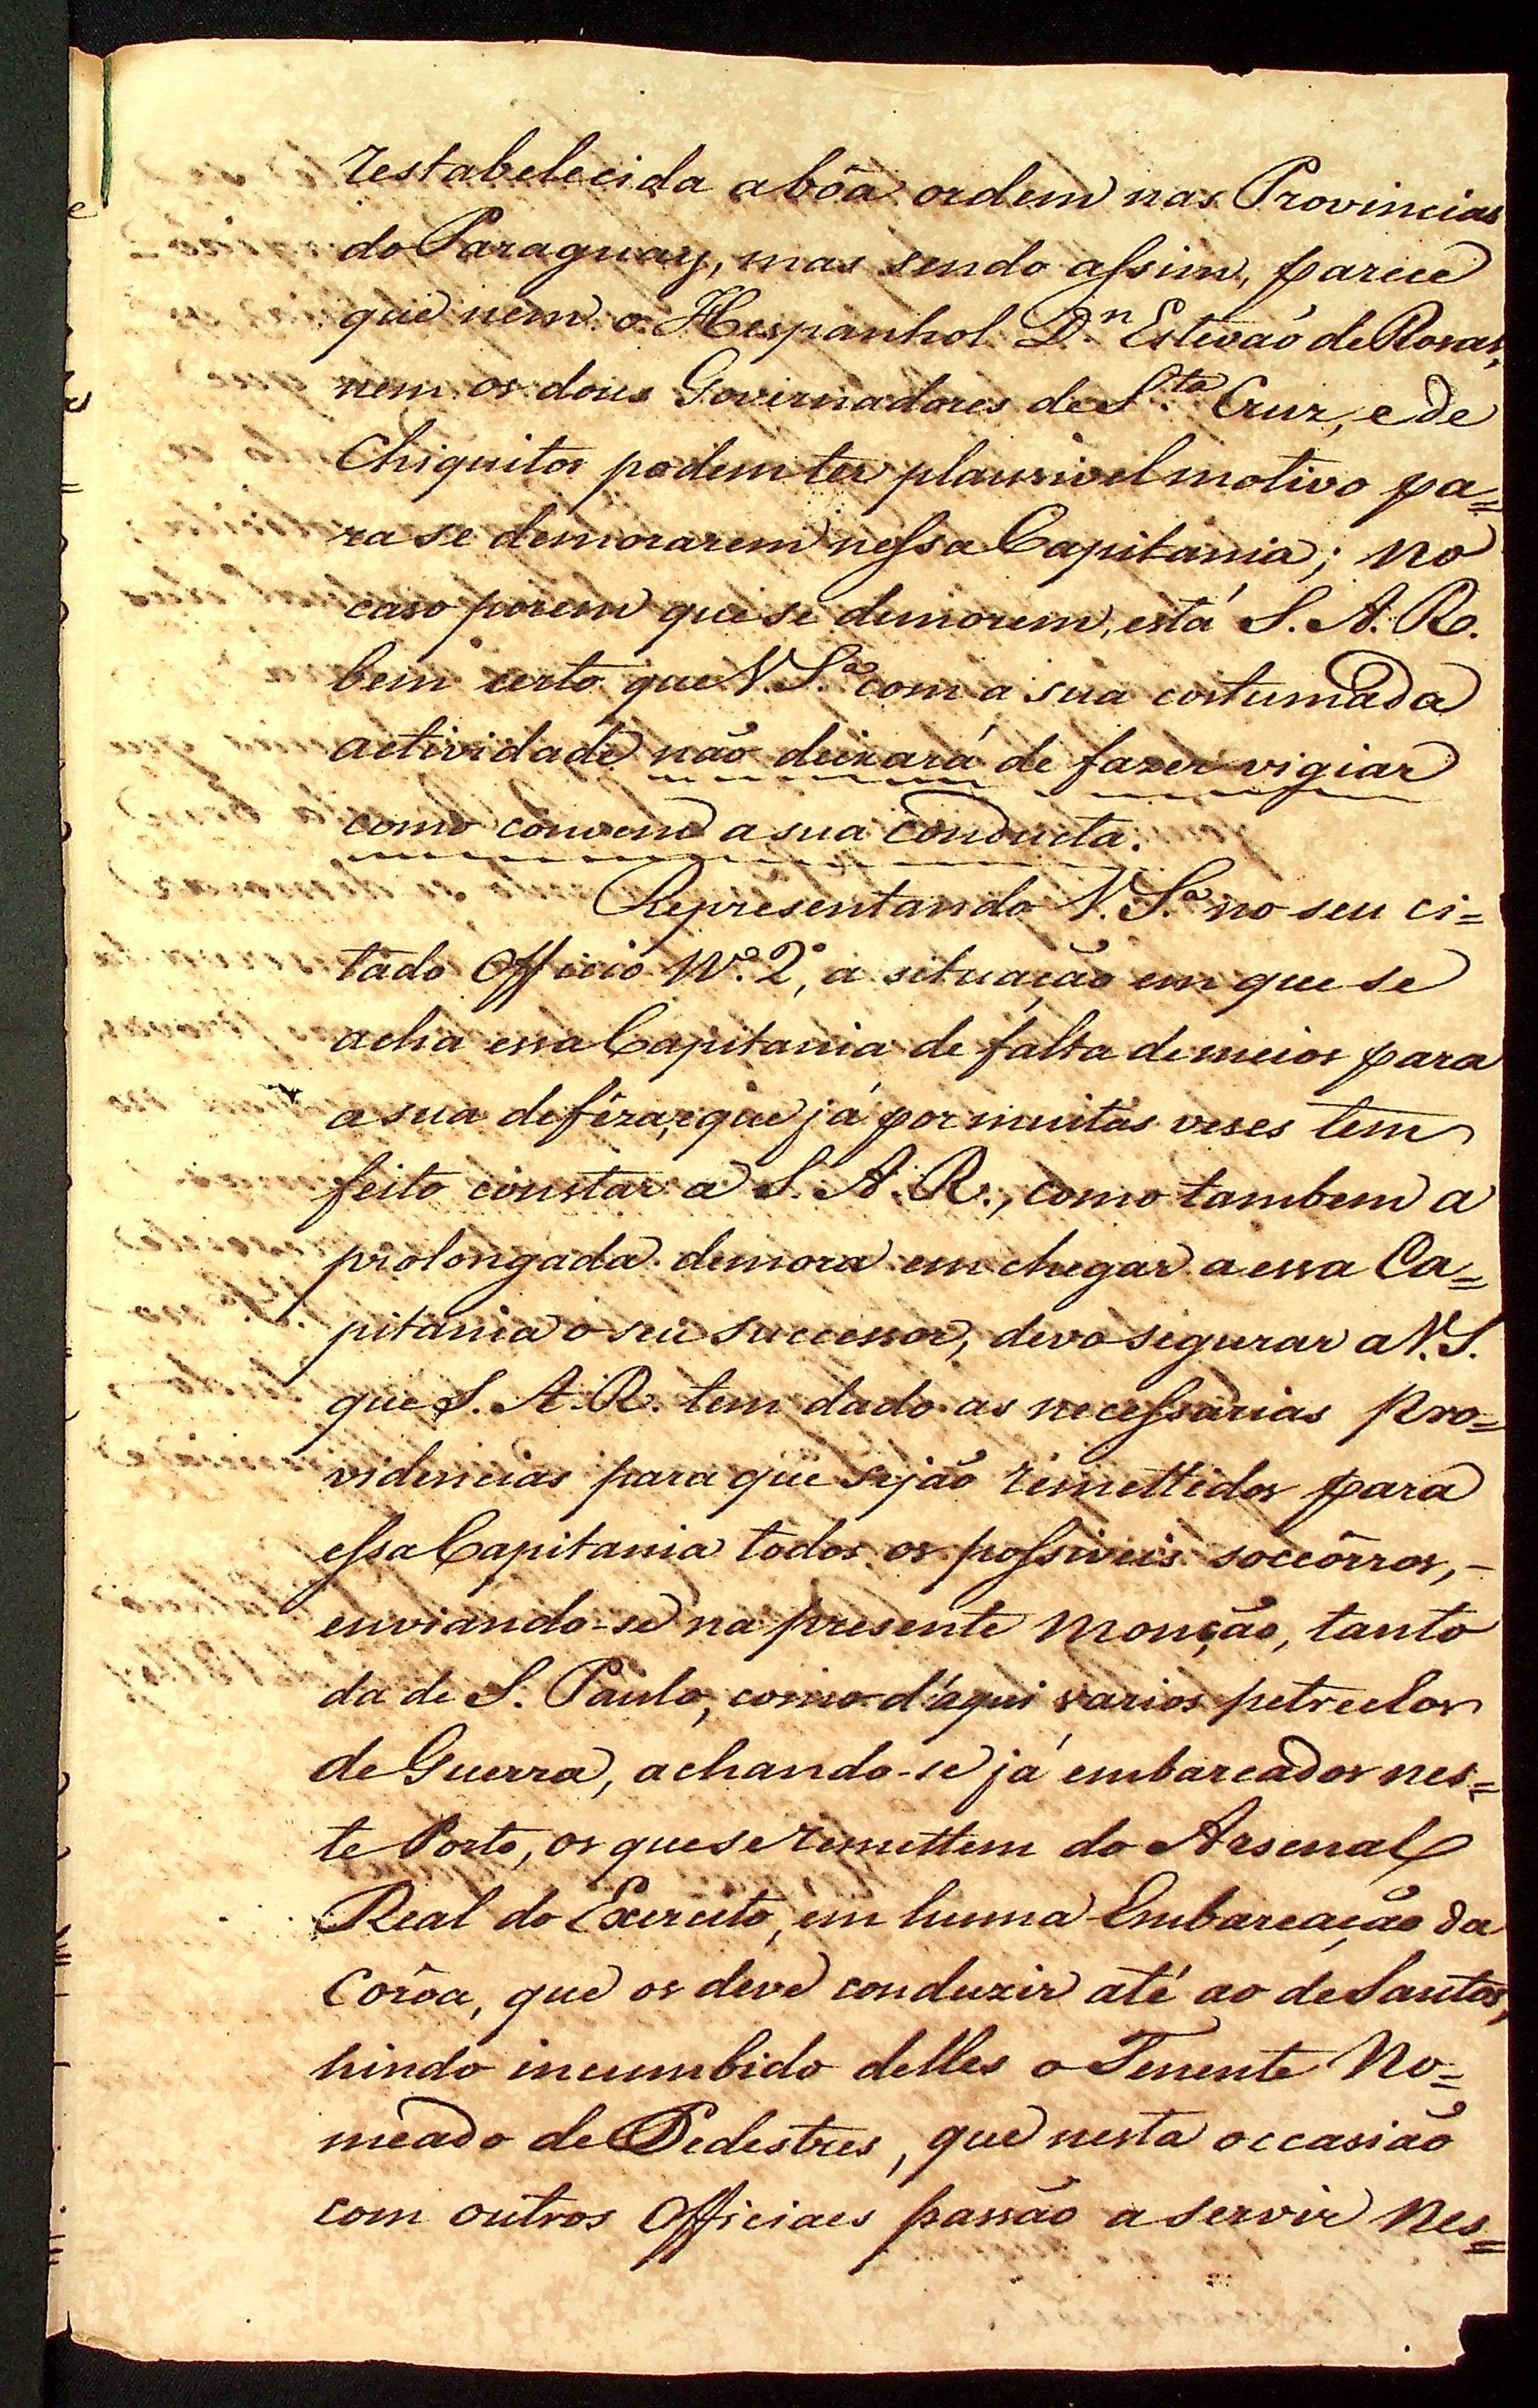 restabelecida a bôa ordem nas Provincias
do Paraguay, mas sendo assim, parece
que nem o Hespanhol D.n Estevaõ de Rosas,
nem os dous Governadores de S.ta Cruz, e de
Chiquitos podem ter plausivel motivo pa=
ra se demorarem nessa Capitania; no
caso porem que se demorem, está S. A. R.
bem certo que V. S.a com a sua costumada
actividade não deixará de fazer vigiar
como convem a sua conducta.
Representando V. S.a no seu ci=
tado Officio N.o 2.o, a situação em que se
acha essa Capitania de falta de meios para
a sua defêza, e que já por muitas veses tem
feito constar a S. A. R., como tambem a
prolongada demora em chegar a essa Ca=
pitania o seu successor, devo segurar a V. S.
que S. A. R. tem dado as necessarias pro=
videncias para que sejão remettidos para
essa Capitania todos os possiveis soccôrros, -
enviando-se na presente monção, tanto
da de S. Paulo, como d'aqui varios petrechos
de Guerra, achando-se já embarcados nes=
te Porto, os que se remettem do Arsenal
Real do Exercito, em huma Embarcação da
Corôa, que os deve conduzir até ao de Santos,
hindo incumbido delles o Tenente No=
meado de Pedestres, que nesta occasião
com outros Officiaes passão a servir nes=